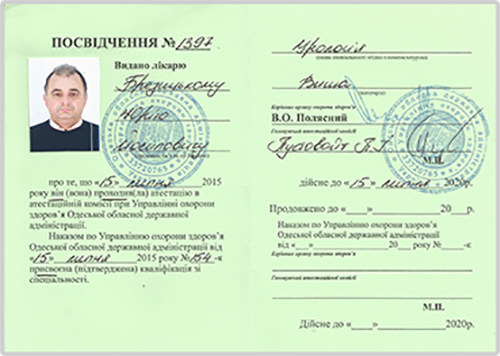 ПОСВІДЧЕННЯ № 1397
Видано лікарю
Юрію
про те, що «15» липня 2015
року він (вона) проходив(ла) атестацію в
атестаційній комісії при Управлінні охорони
здоров'я Одеської обласної державної
адміністрації.
Наказом по Управлінню охорони здоров'я
Одеської обласної державної адміністрації від
«15» липня 2015 року № 154-к
присвоєна (підтверджена) кваліфікація зі
спеціальності.
Урологія
Вища
Керівник органу охорони здоров'я
В.О. Полясний
Голова атестаційної комісії
М.П.
дійсне до «15» липня 2020р.
Продовжено до «____»________20___р.
Наказом по Управлінню охорони здоров'я
Одеської обласної державної адміністрації
від «___»________20___року №____-к
Керівник органу охорони здоров'я
Голова атестаційної комісії
М.П.
Дійсне до «____»________2020р.